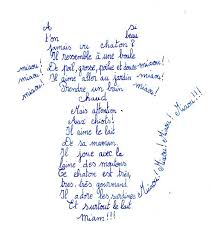 A si
t'on beau
jamais vu chaton?
miaou! Il ressemble à une boule miaou!
miaou! De poil, grosse, petite et douce miaou!
miaou! Il aime aller au jardin miaou!
Prendre un bain
chaud
Mais attention
Aux chiots!
Il aime le lait
De sa maman.
Il joue avec la
laine des moutons
Ce chaton est très,
très, très gourmand
Il adore les sardines
Et surtout le lait
Miam!!!
Miaou! Miaou! Miaou! Miaou!!!